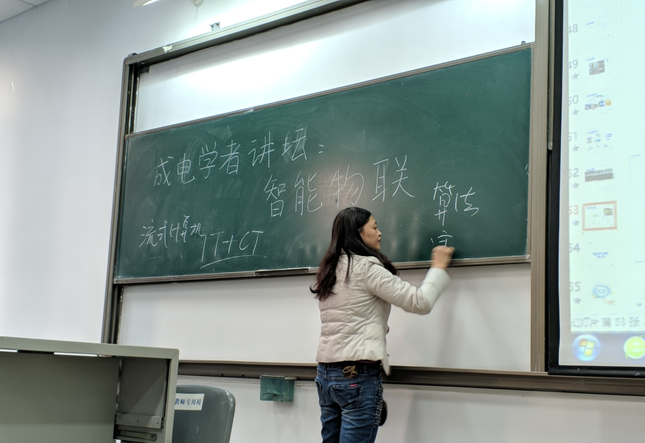 成电学者讲坛：
智能物联
算法
流式计算机
IT+CT
48
49
50
51
52
53
54
55
教师专用椅